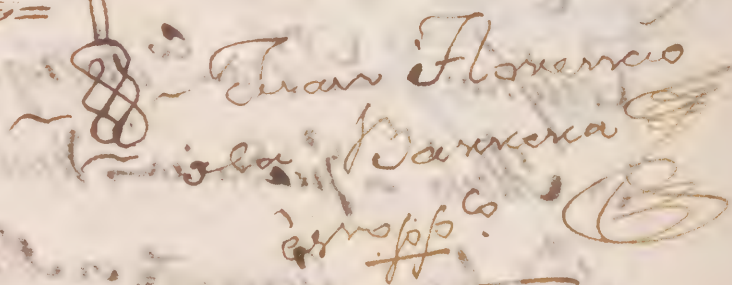 Juan Florencio
de la Barrera
essno pp.co